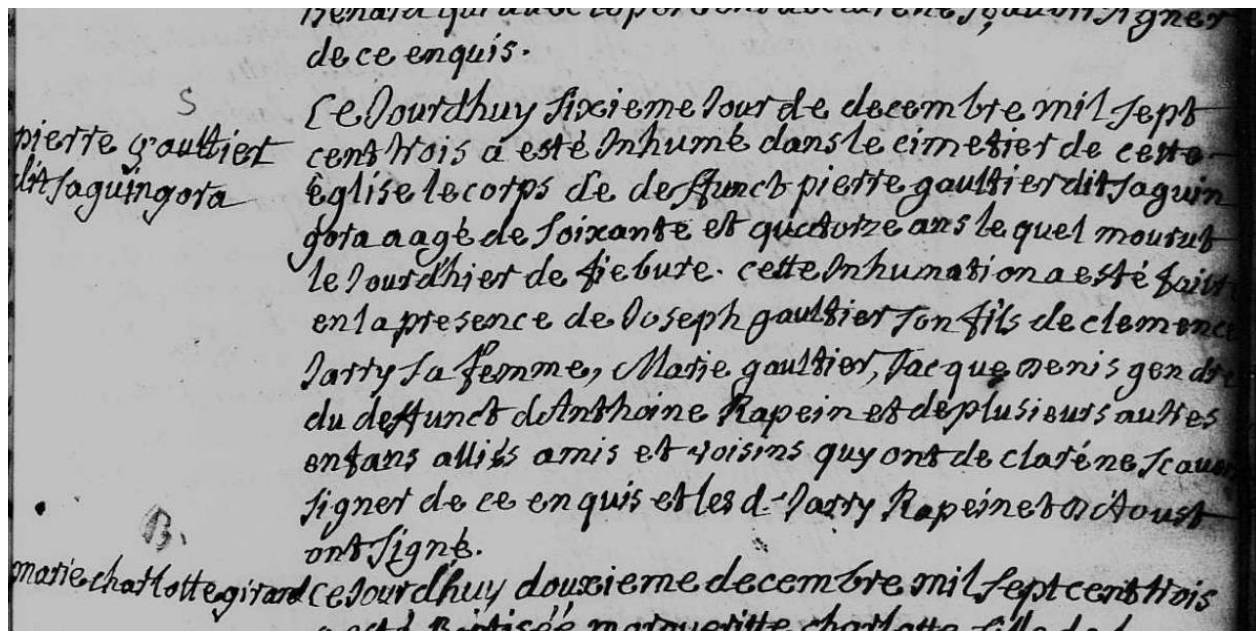 de ce enquis.
S
pierre gaultier
dit saguingora
Ce Jourdhuy sixieme Jour de decembre mil sept
cent trois a esté Inhumé dans le cimetier de cette
Église le corps de deffunct pierre gaultier dit saguin
gora aagé de soixante et quatorze ans le quel mourut
le Jourdhier de fiebure. cette Inhumation a esté faitte
en la presence de Joseph gaultier son fils de clemence
Jarry sa femme, Marie gaultier, Jacque Denis gendre
du deffunct d'Anthoine Rapein et de plusieurs autres
enfans alliés amis et voisins quy ont declaré ne scavoir
signer de ce enquis et les d. Jarry Rapein et
ont signé.
B.
marie charlotte girard
ce Jourdhuy douxieme decembre mil sept cent trois
a esté Baptisée margueritte charlotte fille de